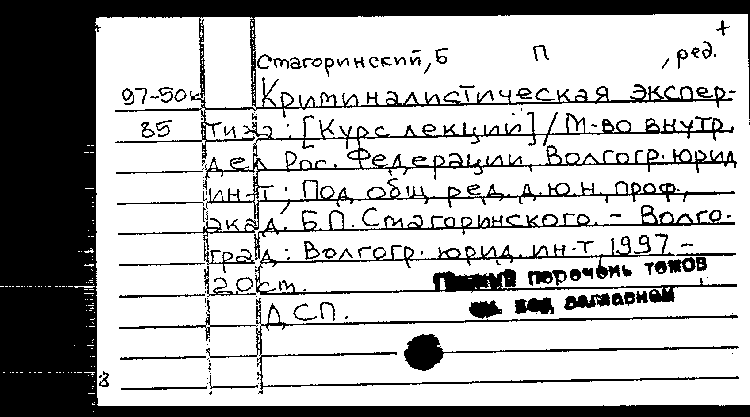 +
Смагоринский, Б П , ред.
97-50к Криминалистическая экспер-
85 тиза: [Курс лекций] / М-во внутр.
дел Рос. Федерации, Волгогр. юрид
ин-т; Под общ. ред. д.ю.н., проф.,
акад. Б.П. Смагоринского. - Волго-
град: Волгогр. юрид. ин-т, 1997. -
20см.
Полный перечень томов
см. под заглавием
ДСП.
8